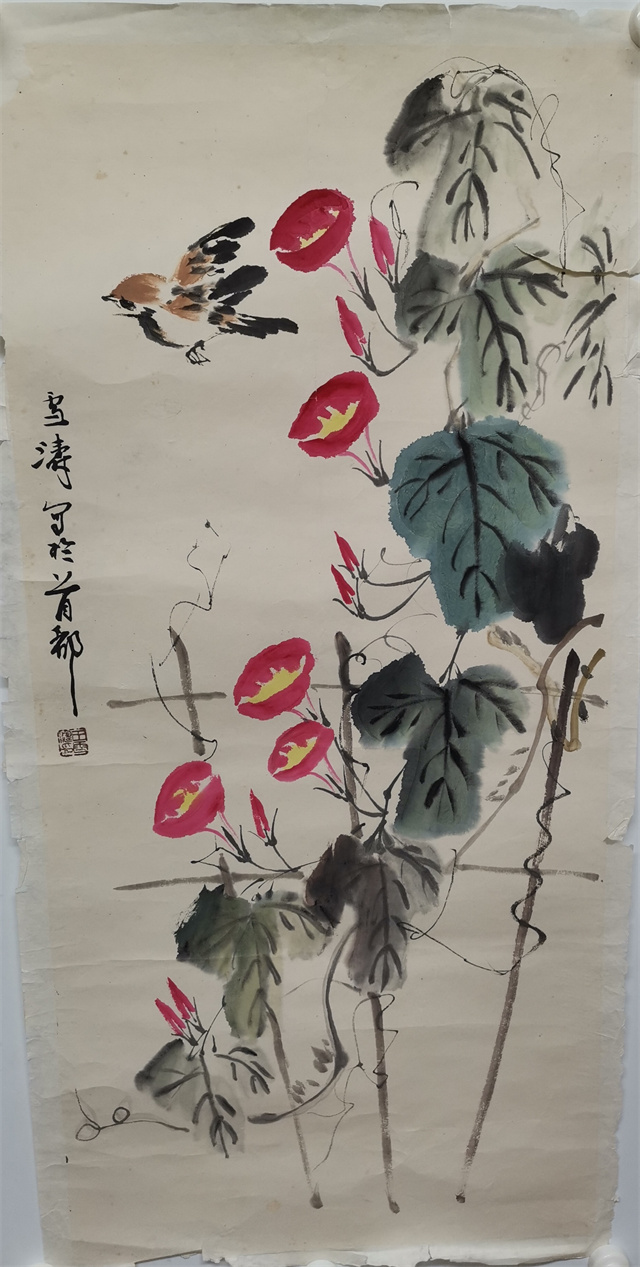 雪涛写于首都